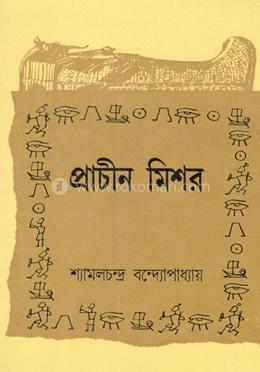 প্রাচীন মিশর
rokomari.com
শ্যামলচন্দ্র বন্দ্যোপাধ্যায়